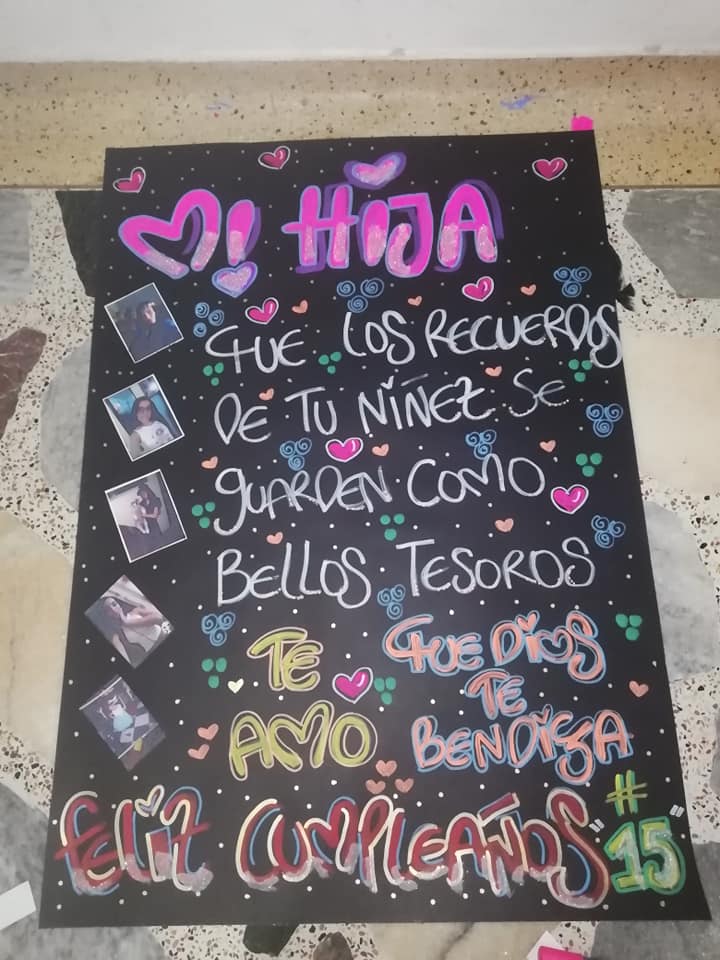 MI HIJA
QUE LOS RECUERDOS
DE TU NIÑEZ SE
GUARDEN COMO
BELLOS TESOROS
TE
AMO
QUE DIOS
TE
BENDIGA
FELIZ CUMPLEAÑOS "#15"